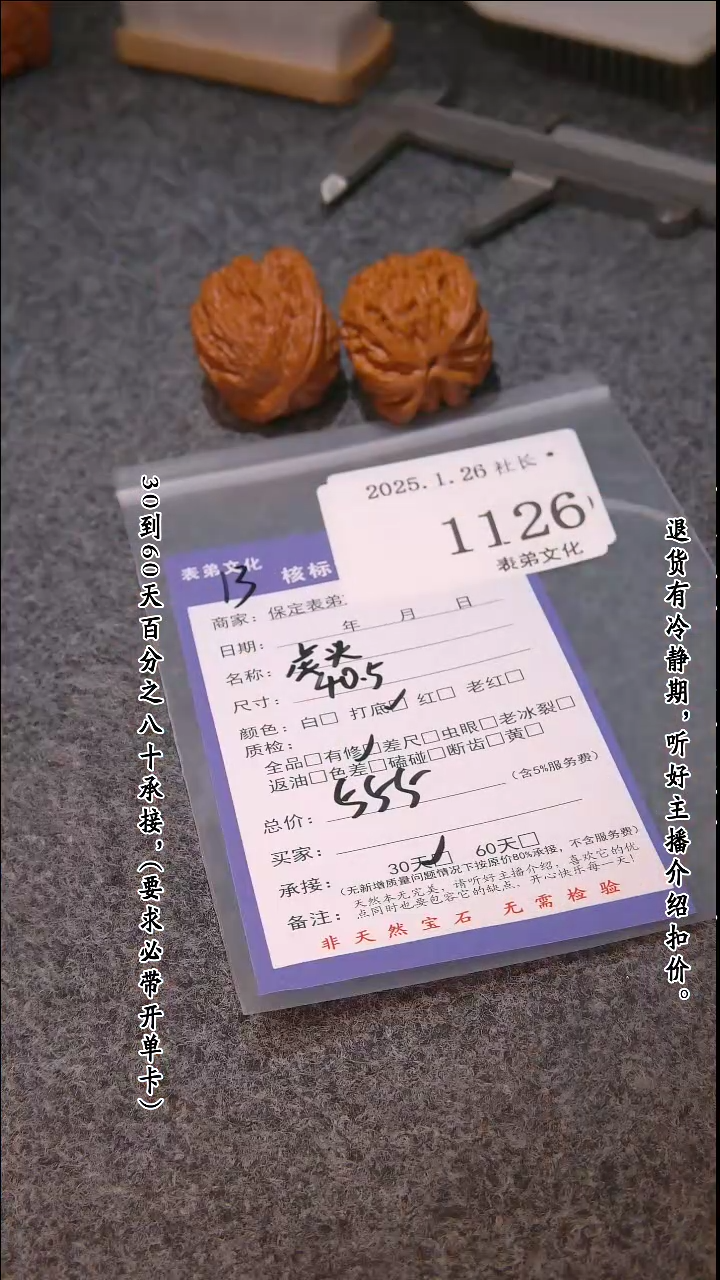 2025.1.26 社长
1126
表弟文化
表弟文化
13
核标
商家：保定表弟
日期： 年 月 日
名称：虎头
尺寸：40.5
颜色：白□ 打底☑ 红□ 老红□
质检：
全品□有修☑差尺□虫眼□老冰裂□
返油□色差□磕碰□断齿□黄□
总价：555（含5%服务费）
买家：
承接：30天☑ 60天□
（无新增质量问题情况下按原价80%承接，不含服务费）
备注：天然本无完美，请听好主播介绍，喜欢它的优
点同时也要包容它的缺点，开心快乐每一天！
非天然宝石 无需检验
30到60天百分之八十承接，（要求必带开单卡）
退货有冷静期，听好主播介绍扣价。